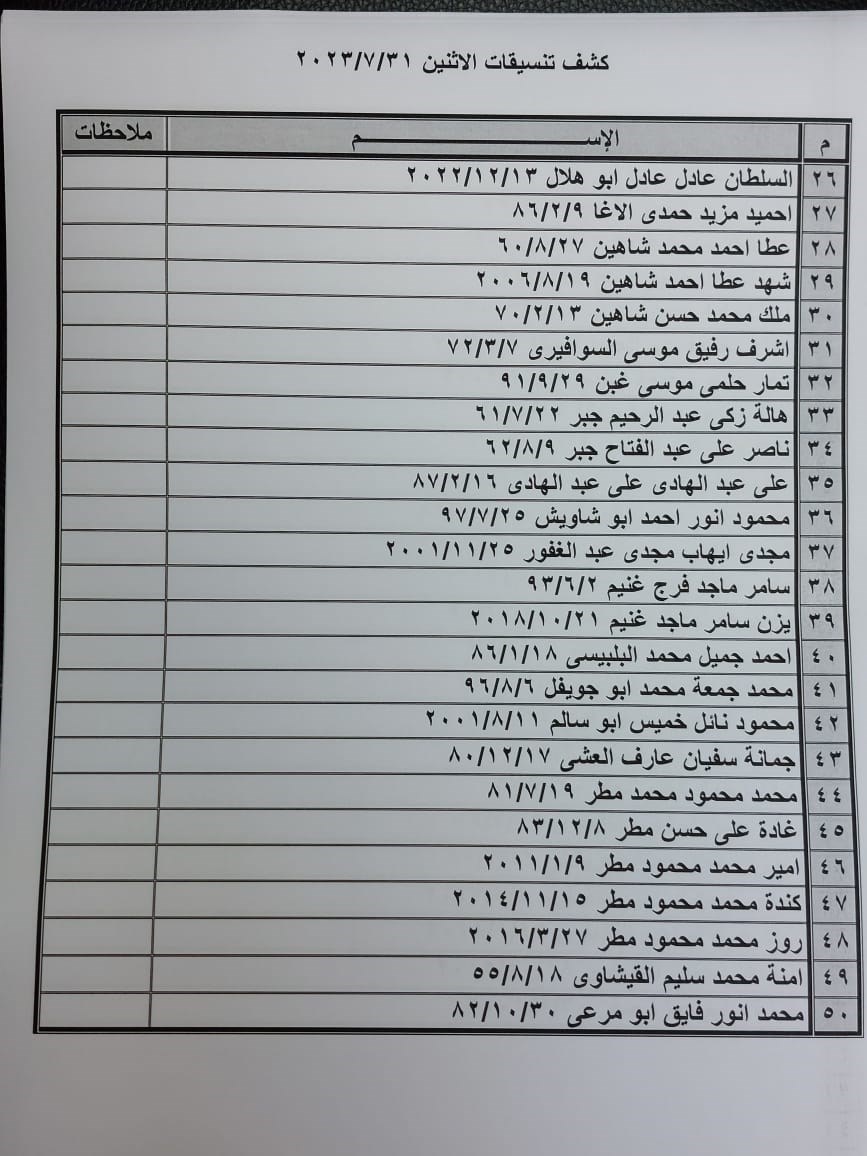 كشف تنسيقات الاثنين ٢٠٢٣/٧/٣١
م الإســـم ملاحظات
٢٦ السلطان عادل عادل ابو هلال ٢٠٢٢/١٢/١٣
٢٧ احميد مزيد حمدى الاغا ٨٦/٢/٩
٢٨ عطا احمد محمد شاهين ٦٠/٨/٢٧
٢٩ شهد عطا احمد شاهين ٢٠٠٦/٨/١٩
٣٠ ملك محمد حسن شاهين ٧٠/٢/١٣
٣١ اشرف رفيق موسى السوافيرى ٧٢/٣/٧
٣٢ تمار حلمى موسى غبن ٩١/٩/٢٩
٣٣ هالة زكى عبد الرحيم جبر ٦١/٧/٢٢
٣٤ ناصر على عبد الفتاح جبر ٦٢/٨/٩
٣٥ على عبد الهادى على عبد الهادى ٨٧/٢/١٦
٣٦ محمود انور احمد ابو شاويش ٩٧/٧/٢٥
٣٧ مجدى ايهاب مجدى عبد الغفور ٢٠٠١/١١/٢٥
٣٨ سامر ماجد فرج غنيم ٩٣/٦/٢
٣٩ يزن سامر ماجد غنيم ٢٠١٨/١٠/٢١
٤٠ احمد جميل محمد البلبيسى ٨٦/١/١٨
٤١ محمد جمعة محمد ابو جويفل ٩٦/٨/٦
٤٢ محمود نائل خميس ابو سالم ٢٠٠١/٨/١١
٤٣ جمانة سفيان عارف العشى ٨٠/١٢/١٧
٤٤ محمد محمود محمد مطر ٨١/٧/١٩
٤٥ غادة على حسن مطر ٨٣/١٢/٨
٤٦ امير محمد محمود مطر ٢٠١١/١/٩
٤٧ كندة محمد محمود مطر ٢٠١٤/١١/١٥
٤٨ روز محمد محمود مطر ٢٠١٦/٣/٢٧
٤٩ امنة محمد سليم القيشاوى ٥٥/٨/١٨
٥٠ محمد انور فايق ابو مرعى ٨٢/١٠/٣٠